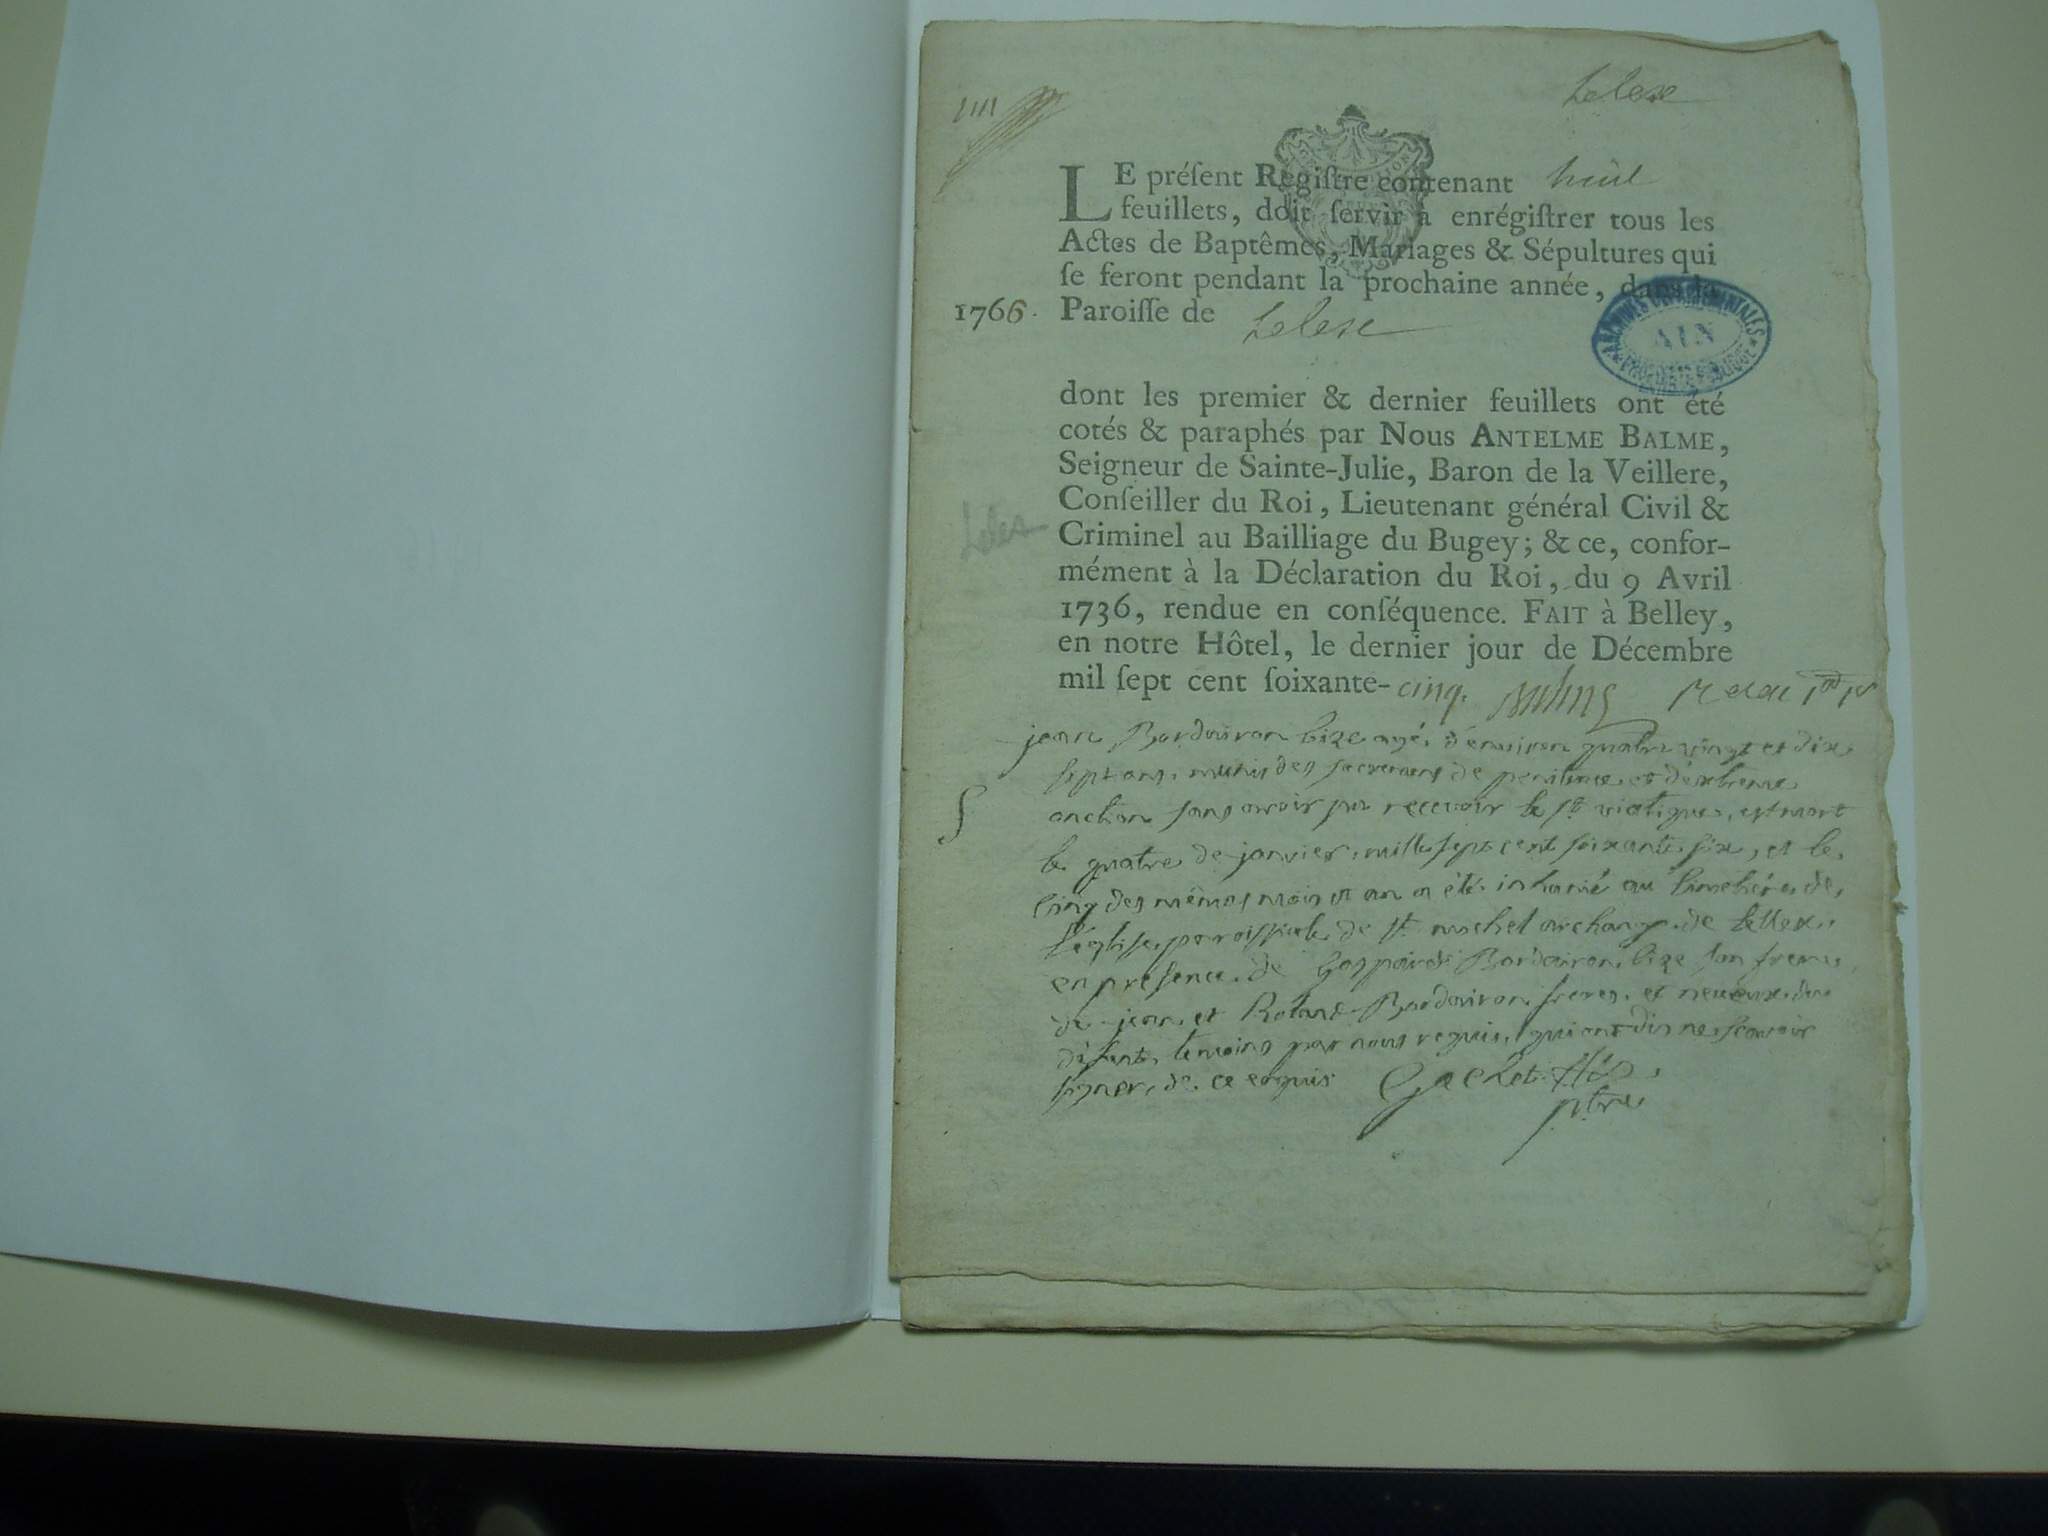 Lelex
LE préſent Regiſtre contenant huit
feuillets, doit ſervir à enrégiſtrer tous les
Actes de Baptêmes, Mariages & Sépultures qui
ſe feront pendant la prochaine année, dans la
1766. Paroiſſe de Lelex
ARCHIVES DÉPARTEMENTALES
AIN
dont les premier & dernier feuillets ont été
cotés & paraphés par Nous ANTELME BALME,
Seigneur de Sainte-Julie, Baron de la Veillere,
Conſeiller du Roi, Lieutenant général Civil &
Lelex
Criminel au Bailliage du Bugey; & ce, confor-
mément à la Déclaration du Roi, du 9 Avril
1736, rendue en conſéquence. FAIT à Belley,
en notre Hôtel, le dernier jour de Décembre
mil ſept cent ſoixante-cinq.
jean Bordairon bize agé d'environ quatre vingt et dix
sept ans, munis des sacremens de penitence et d'extreme
S
onction sans avoir pu recevoir le st viatique, est mort
le quatre de janvier, mille sept cent soixante six, et le
cinq des mêmes mois et an a été inhumé au cimetiére de
l'église paroissiale de st michel archange de Lellex,
en presence de Gaspard Bordairon bize son frere,
de jean et Roland Bordairon freres et neveux du
défunt, temoins par nous requis, qui ont dis ne scavoir
signer, de ce enquis Gachet
ptre